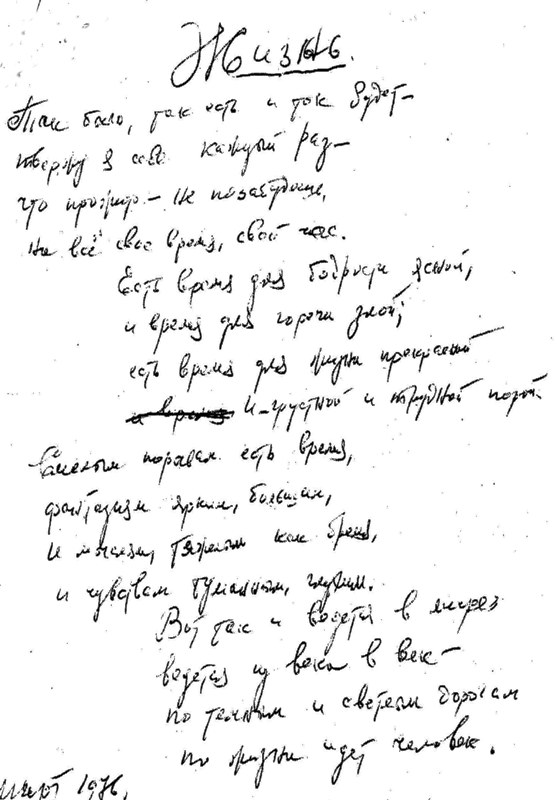 Жизнь.
Так было, так есть и так будет –
твержу я себе каждый раз –
что прожито – не позабудешь,
На всё свое время, свой час.
Есть время для бодрости ясной,
и время для горечи злой;
есть время для жизни прекрасной
и грустной и трудной порой.
Смелым порывам есть время,
фантазиям ярким, большим,
и мыслям, тяжелым как бремя,
и чувствам туманным, глухим.
Вот так и ведется в мире
ведется из века в век –
по темным и светлым дорогам
по жизни идет человек.
март 1976.